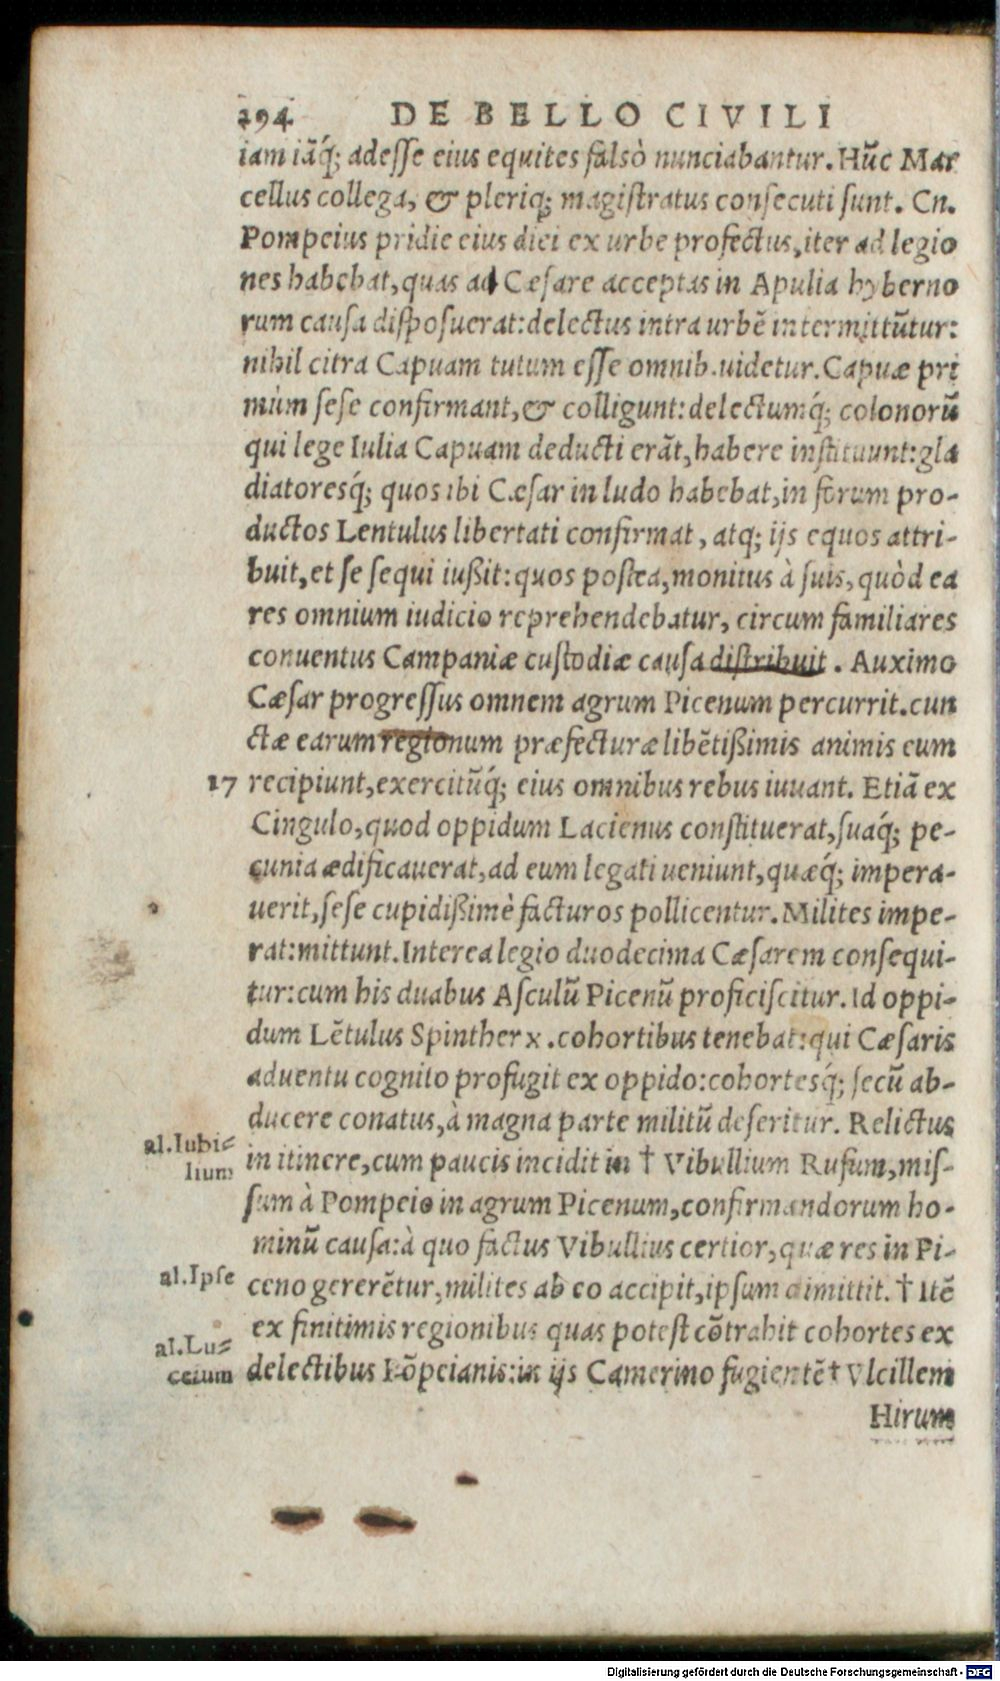 294 DE BELLO CIVILI
iam iāq́; adesse eius equites falsò nunciabantur. Hūc Mar
cellus collega, & pleriq; magistratus consecuti sunt. Cn.
Pompeius pridie eius diei ex urbe profectus, iter ad legio
nes habebat, quas ad Cæsare acceptas in Apulia hyberno
rum causa disposuerat: delectus intra urbē intermittūtur:
nihil citra Capuam tutum esse omnib. uidetur. Capuæ pri
mùm sese confirmant, & colligunt: delectumq́; colonorū
qui lege Iulia Capuam deducti erāt, habere instituunt: gla
diatoresq́; quos ibi Cæsar in ludo habebat, in forum pro-
ductos Lentulus libertati confirmat, atq; ijs equos attri-
buit, et se sequi iußit: quos postea, monitus à suis, quòd ea
res omnium iudicio reprehendebatur, circum familiares
conuentus Campaniæ custodiæ causa distribuit. Auximo
Cæsar progressus omnem agrum Picenum percurrit. cun
ctæ earum regionum præfecturæ libētißimis animis eum
17 recipiunt, exercitūq́; eius omnibus rebus iuuant. Etiā ex
Cingulo, quod oppidum Lacienus constituerat, suaq́; pe-
cunia ædificauerat, ad eum legati ueniunt, quæq́; impera-
uerit, sese cupidißimè facturos pollicentur. Milites impe-
rat: mittunt. Interea legio duodecima Cæsarem consequi-
tur: cum his duabus Asculū Picenū proficiscitur. Id oppi-
dum Lētulus Spinther x. cohortibus tenebat: qui Cæsaris
aduentu cognito profugit ex oppido: cohortesq́; secū ab-
ducere conatus, à magna parte militū deseritur. Relictus
al. Iubi=
lium
in itinere, cum paucis incidit in † Vibullium Rufum, mis-
sum à Pompeio in agrum Picenum, confirmandorum ho-
minū causa: à quo factus Vibullius certior, quæ res in Pi-
al. Ipse
ceno gererētur, milites ab eo accipit, ipsum dimittit. † Itē
ex finitimis regionibus quas potest cōtrahit cohortes ex
al. Lu=
ceium
delectibus Pōpeianis: in ijs Camerino fugientē † Vlcillem
Hirum
Digitalisierung gefördert durch die Deutsche Forschungsgemeinschaft - DFG